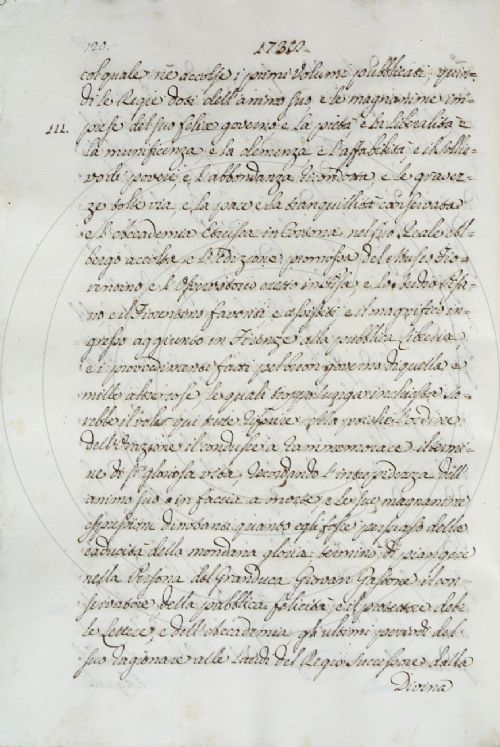 120. 1738
col quale ne accolse i primi volumi pubblicati; quin-
di le Regie doti dell'animo suo e le magnanime im-
III. prese del suo felice governo e la pietà e la liberalità e
la munificenza e la clemenza e l'affabilità, e il solle-
vo di poveri, e l'abbondanza ricondotta, e le gravez-
ze tolte via, e la pace e la tranquillità conservata
e l'Accademia Etrusca in Cortona nel suo Reale Al-
bergo accolta e l'Edizione promossa del Museo Fio-
rentino e l'Osservatorio eretto in Pisa, e lo Studio Pisa-
no e il Fiorentino favoriti e assistiti e il magnifico in-
gresso aggiunto in Firenze alla pubblica Libreria
e i provvedimenti fatti pel buon governo di quella e
mille altre cose le quali troppo lunga inchiesta sa-
rebbe il voler qui tutte ridurre L'ordine
dell'Orazione il condusse a rammemorare il termi-
ne di sì gloriosa vita ricordando l'intrepidezza dell'
animo suo in faccia a morte, e le sue magnanime
espressioni dinotanti quanto egli fosse persuaso della
caducità della mondana gloria terminò di piangere
nella Persona del Granduca Giovan Gastone il con-
servatore della pubblica felicità e il protettore delle
le Lettere, e dell'Accademia gli ultimi periodi del
suo ragionare alle Laudi del Regio Successore dalla
Divina